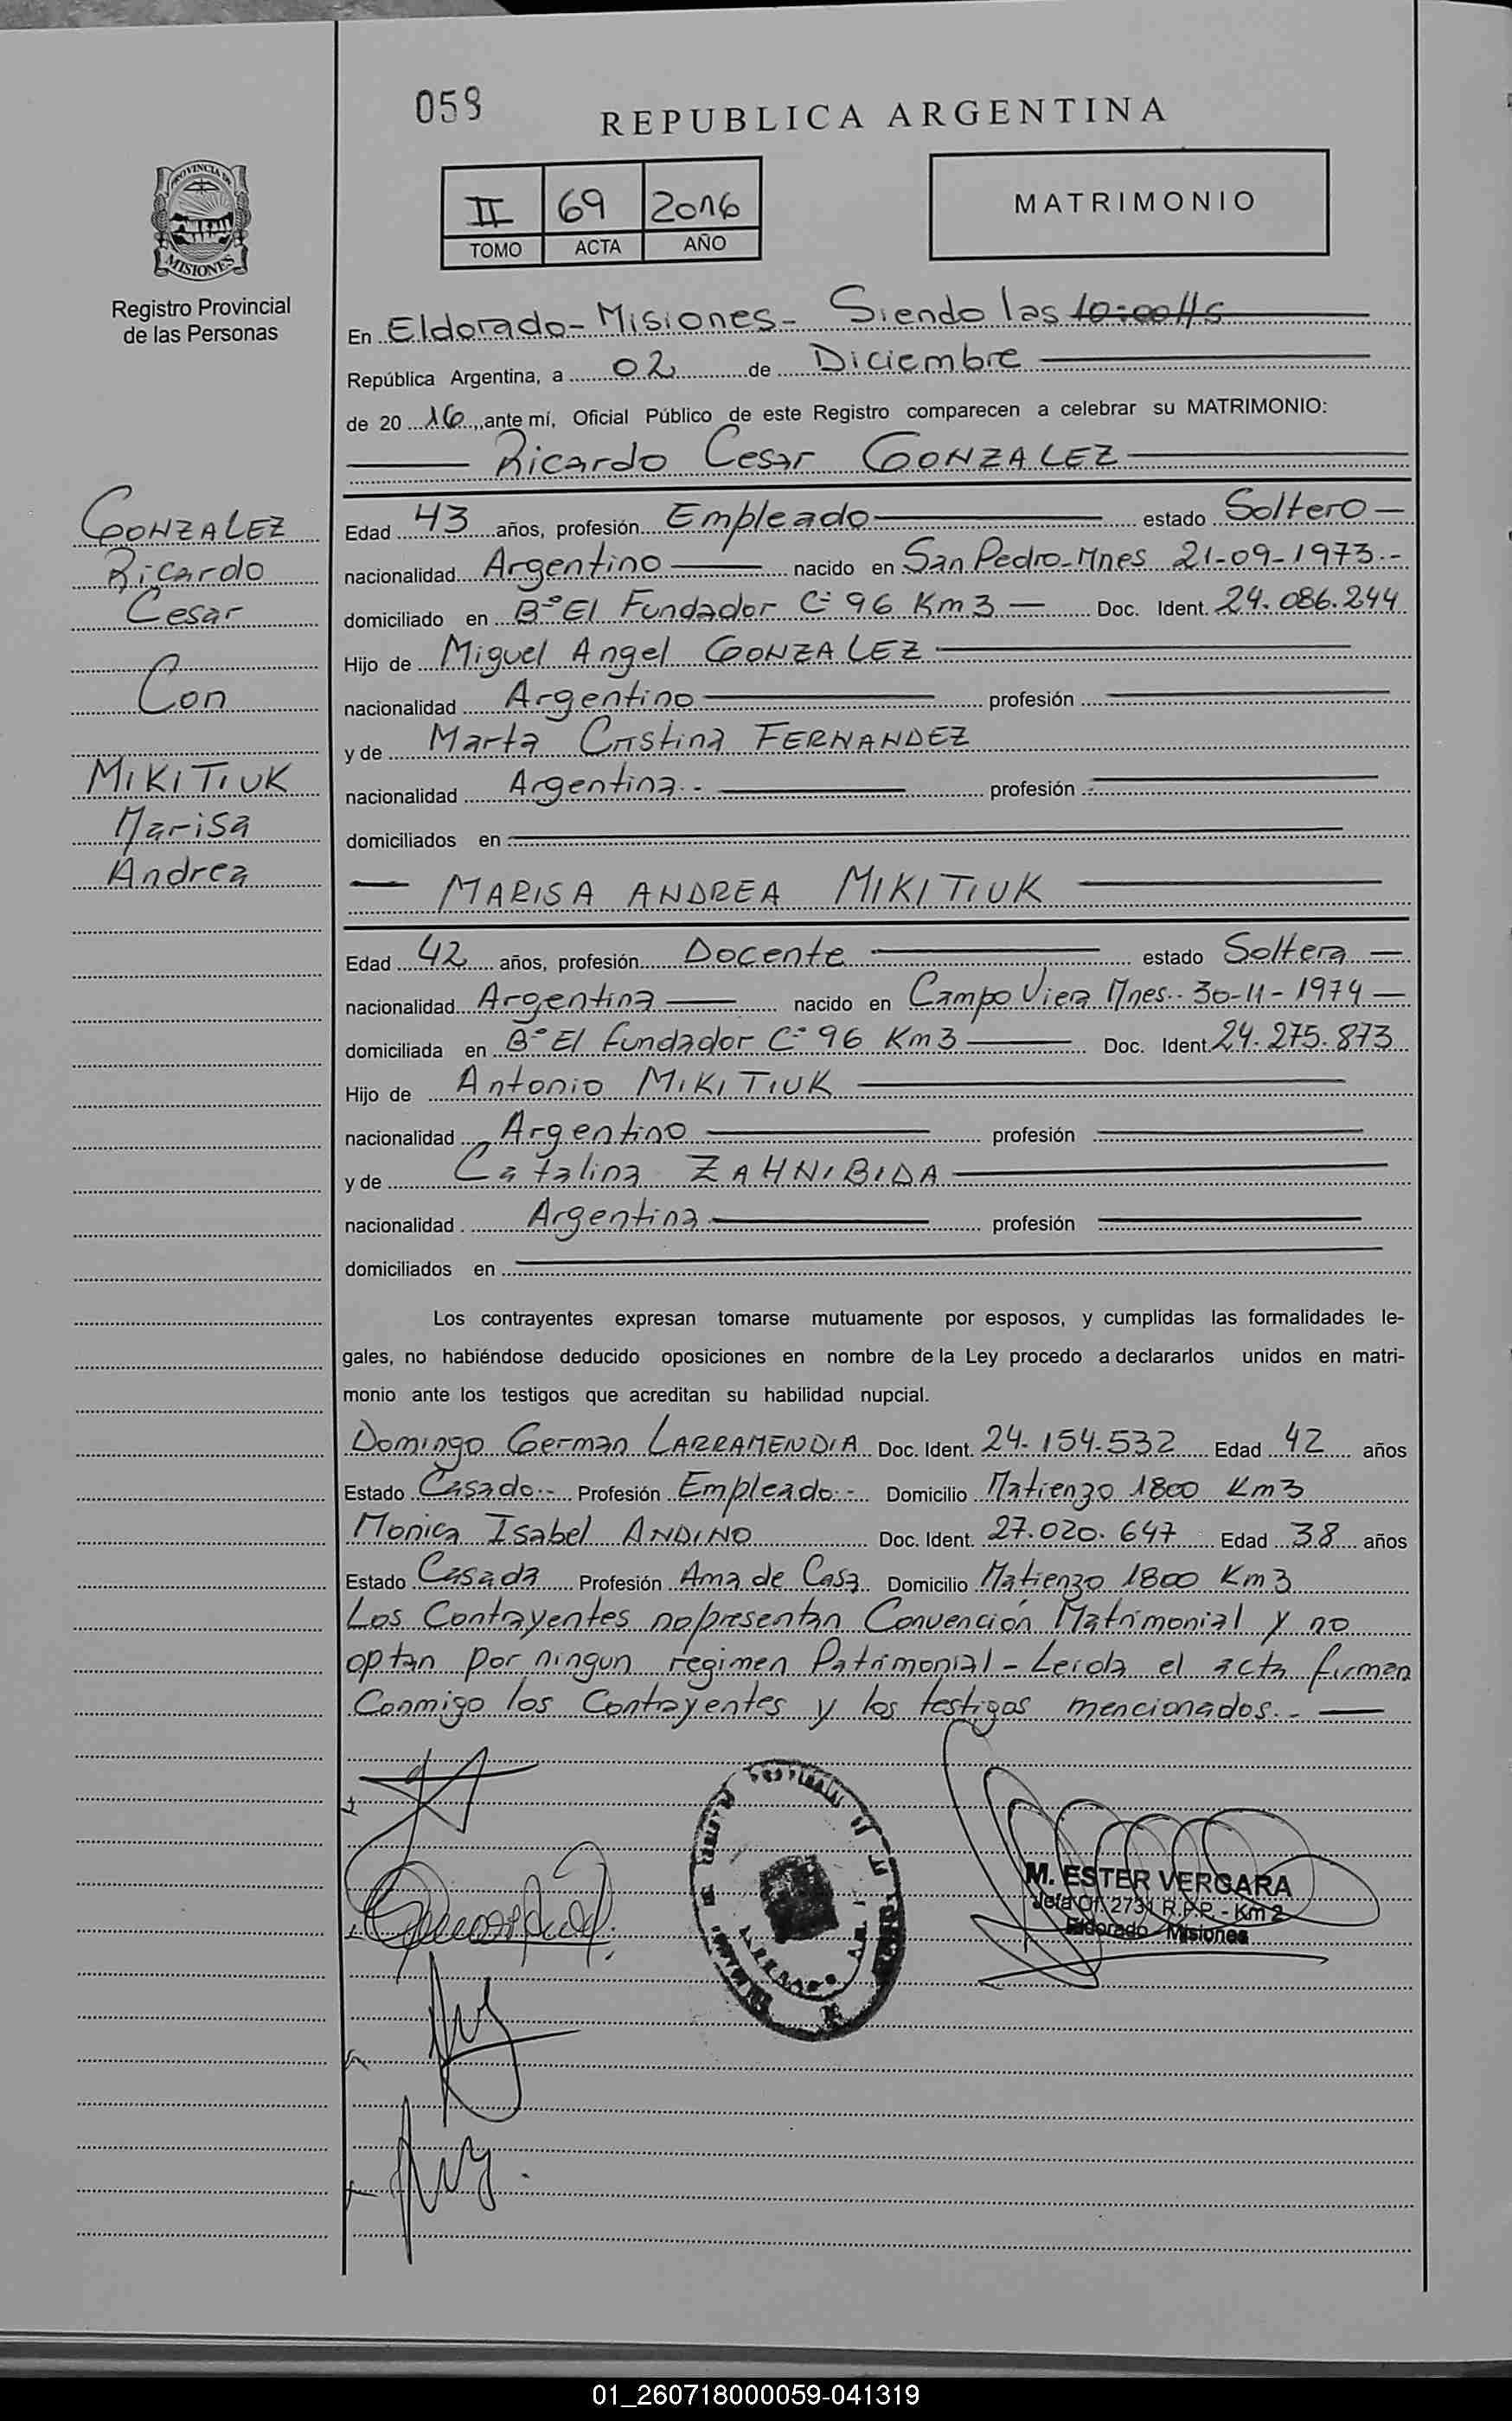 059
REPUBLICA ARGENTINA
II 69 2016
TOMO ACTA AÑO
MATRIMONIO
PROVINCIA DE
MISIONES
Registro Provincial
de las Personas
En Eldorado - Misiones - Siendo las 10:00 Hs
República Argentina, a 02 de Diciembre
de 20 16 ante mí, Oficial Público de este Registro comparecen a celebrar su MATRIMONIO:
Ricardo Cesar GONZALEZ
GONZALEZ
Ricardo
Cesar
Con
MIKITIUK
Marisa
Andrea
Edad 43 años, profesión Empleado estado Soltero
nacionalidad Argentino nacido en San Pedro - Mnes 21-09-1973.-
domiciliado en B° El Fundador C= 96 Km 3 Doc. Ident. 24.086.244
Hijo de Miguel Angel GONZALEZ
nacionalidad Argentino profesión
y de Marta Cristina FERNANDEZ
nacionalidad Argentina.- profesión
domiciliados en
MARISA ANDREA MIKITIUK
Edad 42 años, profesión Docente estado Soltera
nacionalidad Argentina nacido en Campo Viera Mnes.. 30-11-1974
domiciliada en B° El Fundador C= 96 Km 3 Doc. Ident. 24.275.873
Hijo de Antonio MIKITIUK
nacionalidad Argentino profesión
y de Catalina ZAHNIBIDA
nacionalidad Argentina profesión
domiciliados en
Los contrayentes expresan tomarse mutuamente por esposos, y cumplidas las formalidades le-
gales, no habiéndose deducido oposiciones en nombre de la Ley procedo a declararlos unidos en matri-
monio ante los testigos que acreditan su habilidad nupcial.
Domingo German LARRAMENDIA Doc. Ident. 24.154.532 Edad 42 años
Estado Casado.- Profesión Empleado.- Domicilio Matienzo 1800 Km 3
Monica Isabel ANDINO Doc. Ident. 27.020.647 Edad 38 años
Estado Casada Profesión Ama de Casa Domicilio Matienzo 1800 Km 3
Los Contrayentes no presentan Convención Matrimonial y no
optan por ningun regimen Patrimonial - Leida el acta firman
Conmigo los Contrayentes y los testigos mencionados.-
M. ESTER VERGARA
Jefa Of. 2731 R.P.P. - Km 2
Eldorado - Misiones
01_260718000059-041319